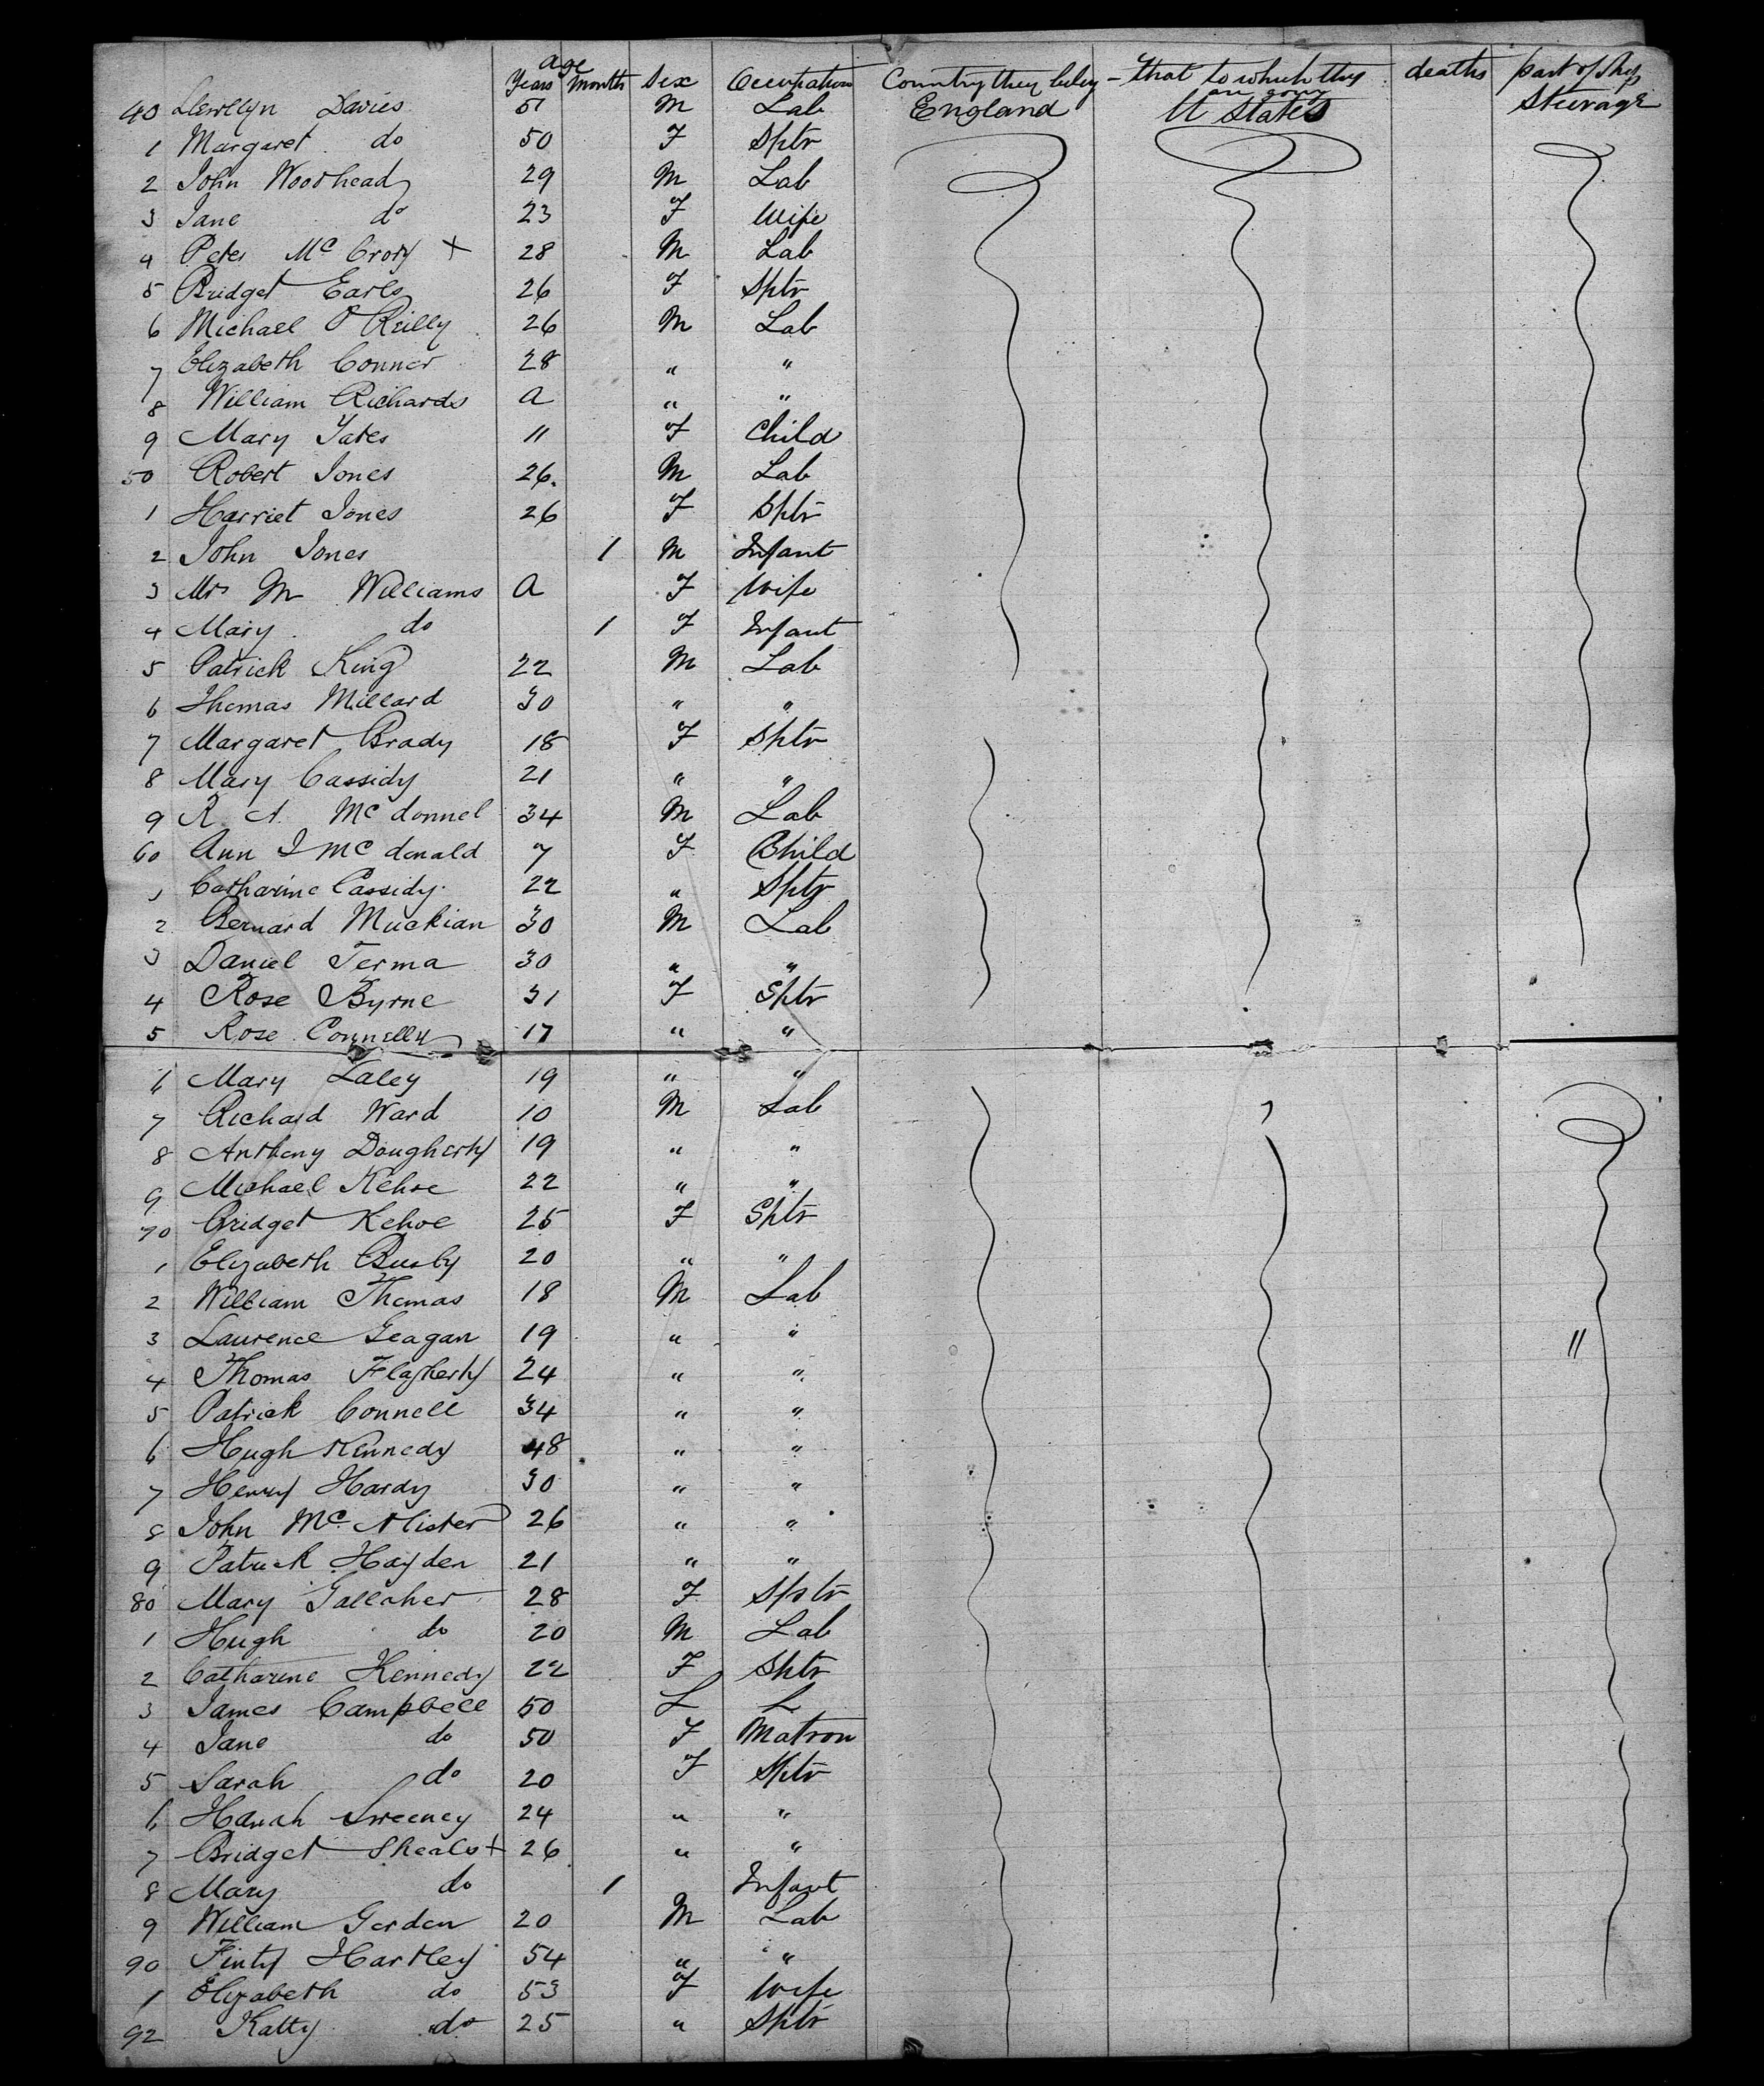 age
Years Month Sex Occupation Country they belong – that to which they are going deaths part of Ship
40 Llewellyn Davies 51 M Lab England U States Steerage
1 Margaret do 50 F Sptr
2 John Woodhead 29 M Lab
3 Jane do 23 F Wife
4 Peter Mc Crory + 28 M Lab
5 Bridget Earls 26 F Sptr
6 Michael O Reilly 26 M Lab
7 Elizabeth Conner 28 " "
8 William Richards a " "
9 Mary Yates 11 F Child
50 Robert Jones 26. M Lab
1 Harriet Jones 26 F Sptr
2 John Jones 1 M Infant
3 Mrs M Williams a F Wife
4 Mary do 1 F Infant
5 Patrick King 22 M Lab
6 Thomas Millard 30 " "
7 Margaret Brady 18 F Sptr
8 Mary Cassidy 21 " "
9 R. A. Mc donnel 34 M Lab
60 Ann J Mc donald 7 F Child
1 Catharine Cassidy 22 " Sptr
2 Bernard Muckian 30 M Lab
3 Daniel Terma 30 " "
4 Rose Byrne 31 F Sptr
5 Rose Connelly 17 " "
6 Mary Laley 19 " "
7 Richard Ward 10 M Lab
8 Anthony Dougherty 19 " "
9 Michael Kehoe 22 " "
70 Bridget Kehoe 25 F Sptr
1 Elizabeth Busby 20 " "
2 William Thomas 18 M Lab
3 Laurence Geagan 19 " " "
4 Thomas Flagherty 24 " "
5 Patrick Connell 34 " "
6 Hugh Kennedy 48 " "
7 Henry Hardy 30 " "
8 John Mc Alister 26 " "
9 Patrick Hayden 21 " "
80 Mary Gallaher 28 F Sptr
1 Hugh do 20 M Lab
2 Catharine Kennedy 22 F Sptr
3 James Campbell 50 L L
4 Jane do 50 F Matron
5 Sarah do 20 F Sptr
6 Hanah Sweeney 24 " "
7 Bridget Sheals + 26 " "
8 Mary do 1 Infant
9 William Gordon 20 M Lab
90 Finty Hartley 54 " "
1 Elizabeth do 53 F Wife
92 Katty do 25 " Sptr